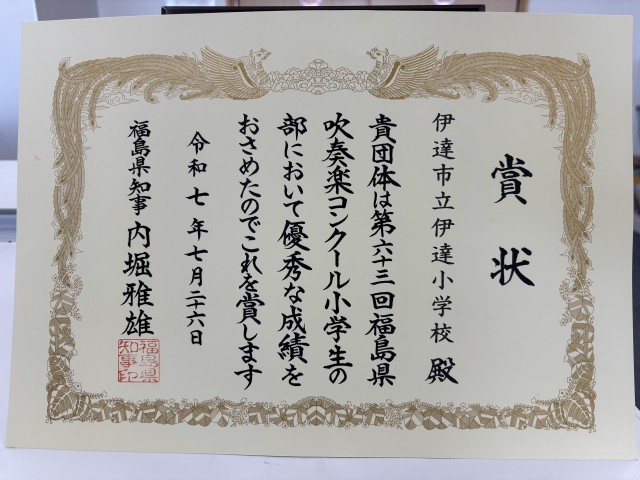 賞状
伊達市立伊達小学校 殿
貴団体は第六十三回福島県
吹奏楽コンクール小学生の
部において優秀な成績を
おさめたのでこれを賞します
令和七年七月二十六日
福島県知事 内堀雅雄
福島県知事印